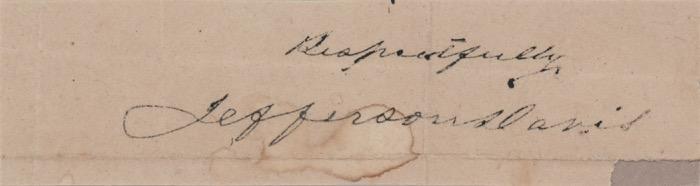 Respectfully,
Jefferson Davis